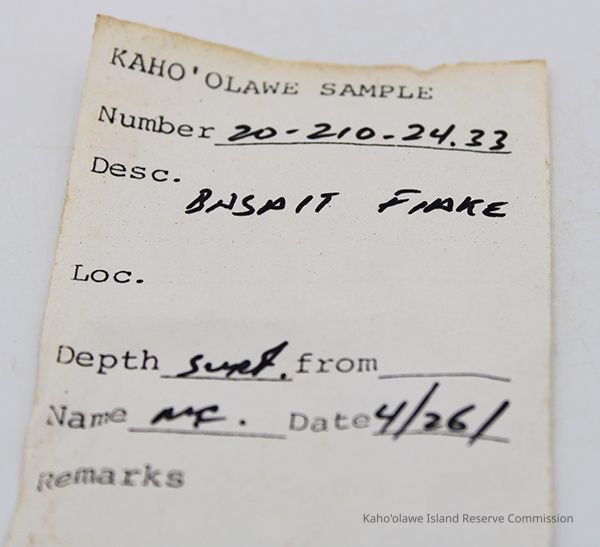 KAHO'OLAWE SAMPLE
Number 20-210-24.33
Desc.
BASALT FLAKE
Loc.
Depth surf. from
Name MC. Date 4/26/
Remarks
Kaho'olawe Island Reserve Commission